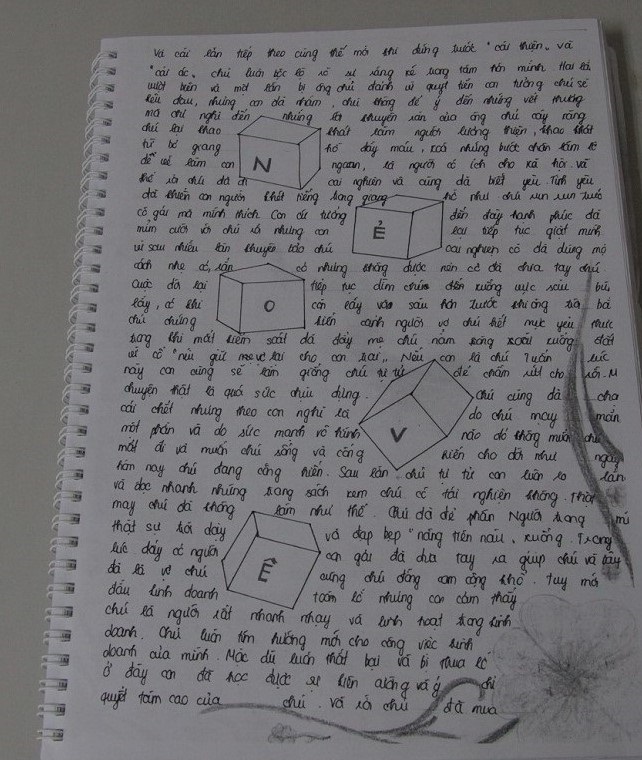 Và cái lần tiếp theo cũng thế mà khi đứng trước "cái thiện" và
"cái ác" chú luôn bộc lộ rõ sự sáng kế trong tâm hồn mình. Hai lần
vượt biên và một lần bị ông chú đánh vì quyết tiền con tưởng chú sẽ
kêu đau, nhưng con đã nhầm, chú không để ý đến những vết thương
mà chỉ nghĩ đến những lời khuyên răn của ông chú cây răng
chú lại khao khát làm người lương thiện, khao khát
từ bỏ giang hồ đẫy máu, xoá những bước chân lầm lỡ
để về làm con ngoan, là người có ích cho xã hội. Và
thế rồi chú đã đi cai nghiện và cũng đã biết yêu. Tình yêu
đã khiến con người khét tiếng trong giang hồ như chú run run trước
cô gái mà mình thích. Con cứ tưởng đến đây hạnh phúc đã
mỉm cười với chú rồi nhưng con lại tiếp tục giật mình
vì sau nhiều lần khuyên bảo chú cai nghiện cô đã dùng mọi
cách nhẹ có, rắn có nhưng không được nên cô đã chia tay chú
Cuộc đời lại tiếp tục dìm chú đến xuống vực sâu bùn
lầy, có khi còn lấy vào sâu hơn trước khi ông trời bà
chú chứng kiến cảnh người vợ chú hết mực yêu thương
trong khi mất kiểm soát đã đẩy mẹ chú nằm sõng soài xuống đất
vì cố "níu giữ mẹ về lại cho con trai". Nếu con là chú Tuấn lúc
này con cũng sẽ lần giống chú tự tử để chấm dứt cho rồi. M
chuyện thật là quá sức chịu đựng. Chú cũng đã cha
cái chết nhưng theo con nghĩ là do chú may mắn
một phần và do sức mạnh vô hình nào đó không muốn chú
mất đi và muốn chú sống và cống hiến cho đời như ngày
hôm nay chú đang cống hiến. Sau lần chú tự tử con luôn lo lắn
và đọc nhanh những trang sách xem chú có tái nghiện không. Thật
may chú đã không làm như thế. Chú đã để phần Người trong mì
thật sự trỗi dậy và đạp bẹp "nàng tiên nâu" xuống. Trong
lúc đấy có người con gái đã đưa tay ra giúp chú và đấy
đã là vợ chú cùng chú đồng cam cộng khổ. Tuy mới
đầu kinh doanh toàn lỗ nhưng con cảm thấy
chú là người rất nhanh nhạy và linh hoạt trong kinh
doanh. Chú luôn tìm hướng mới cho công việc kinh
doanh của mình. Mặc dù luôn thất bại và bị thua lỗ
ở đấy con đã học được sự kiên cường và ý chí
quyết tâm cao của chú. Và rồi chú đã mua
N
Ẻ
O
V
Ê